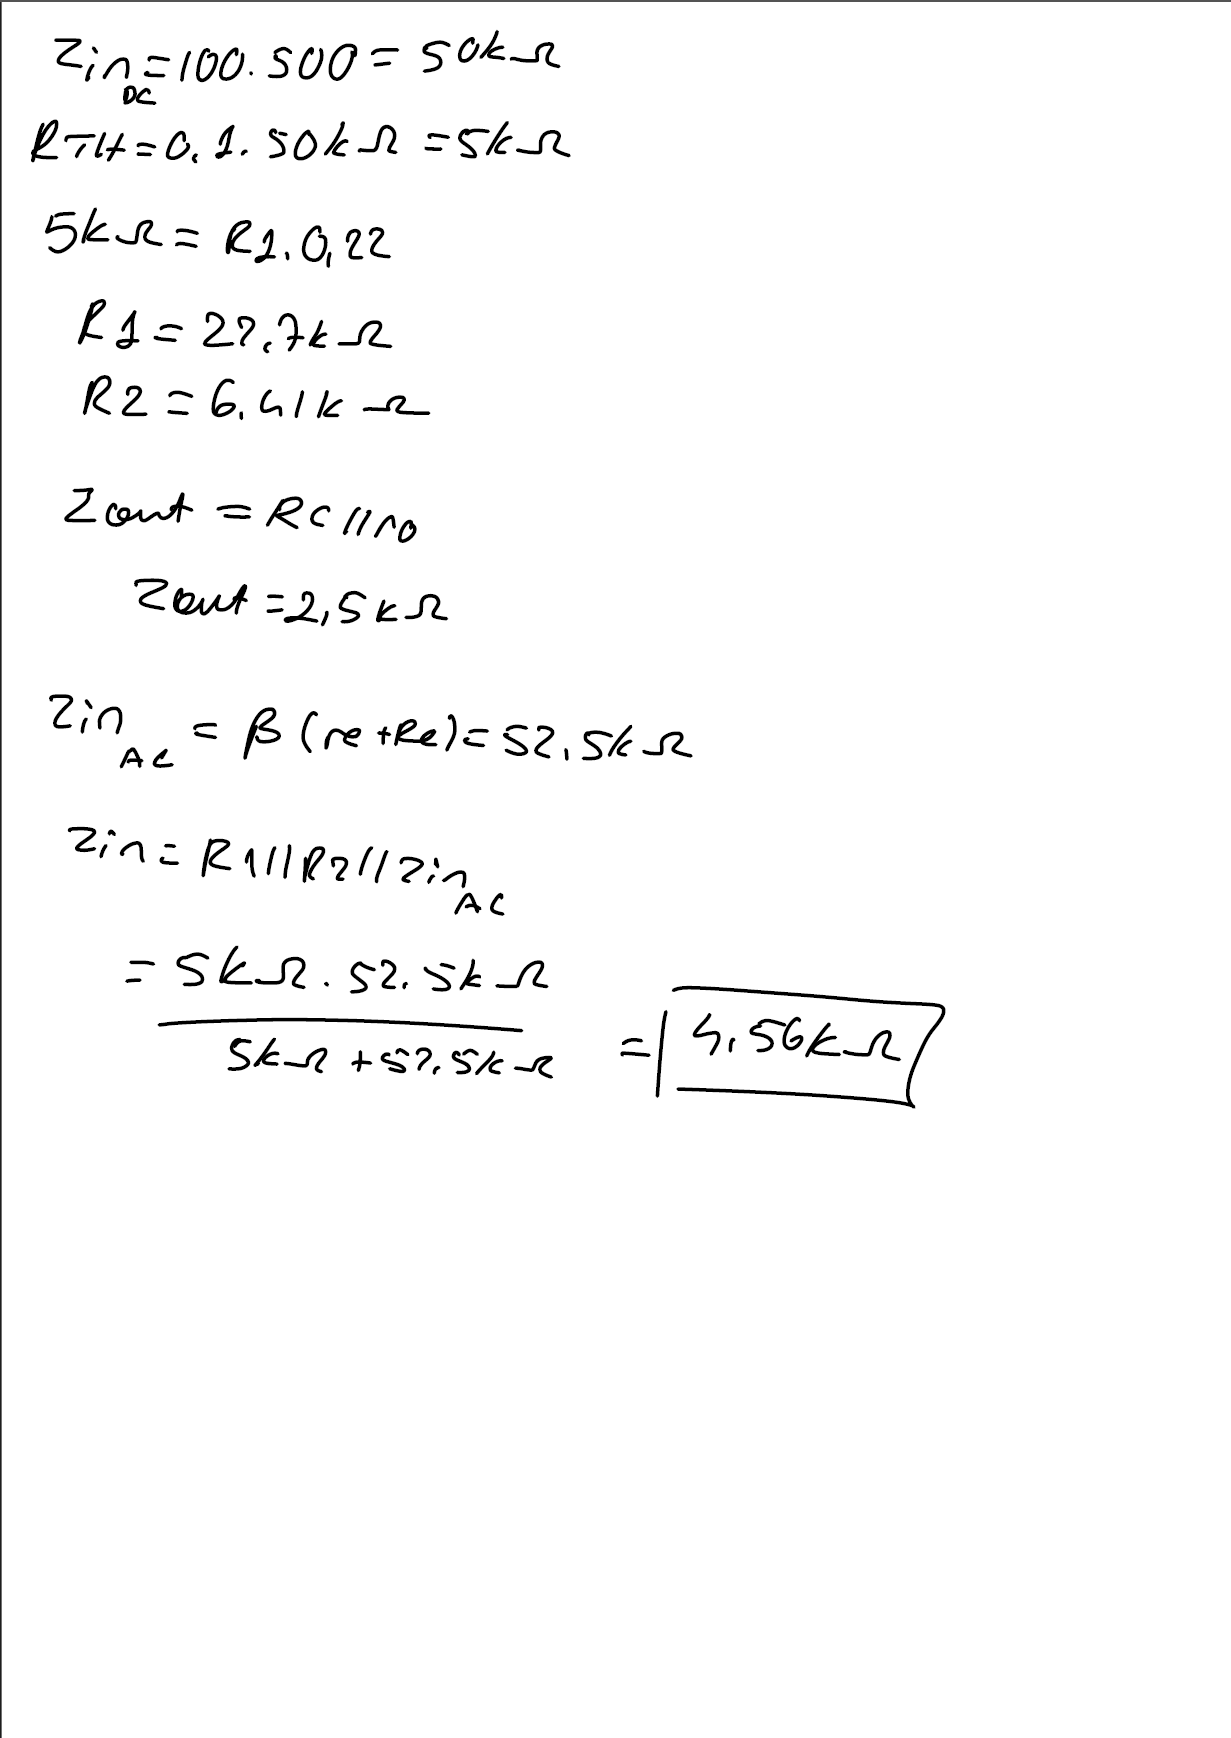 Zin DC = 100.500 = 50kΩ
RTH = 0,1.50kΩ = 5kΩ
5kΩ = R1.0,22
R1 = 22,7kΩ
R2 = 6,41kΩ
Zout = RC//ro
Zout = 2,5kΩ
Zin AC = β(re+Re) = 52,5kΩ
Zin = R1//R2//Zin AC
= 5kΩ.52,5kΩ
5kΩ + 52,5kΩ = 4,56kΩ